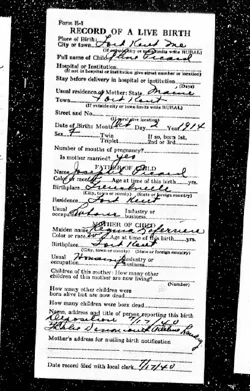 Form R-1
RECORD OF A LIVE BIRTH
Place of Birth:
City or town Fort Kent Me
(If outside city or town limits write RURAL)
Full name of Child Picard
Hospital or Institution
(If not in hospital or institution give street number or location)
Stay before delivery in hospital or institution
Usual residence of Mother: State Maine
Town Fort Kent
(If outside city or town limits write RURAL)
Street and No.
Date of Birth: Month Day Year 1914
Sex F Twin If so, born 1st.
Triplet 2nd or 3rd
Number of months of pregnancy?
Is mother married? yes
FATHER OF CHILD
Name Joseph Picard
Color or race Age at time of this birth yrs.
Birthplace Grenoble
(City, town or foreign country)
Residence Fort Kent
Usual Industry or
occupation Labourer business
MOTHER OF CHILD
Maiden name Regina
Color or race Age at time of this birth yrs.
Birthplace Fort Kent
(City, town or foreign country)
Usual Housewife Industry or
occupation business
Children of this mother: How many other
children of this mother are now living?
(Number)
How many other children were
born alive but are now dead
How many children were born dead
Name, address and title of person reporting this birth
Deposition 7/17/40
Mother's address for mailing birth notification
Date record filed with local clerk 7/17/40